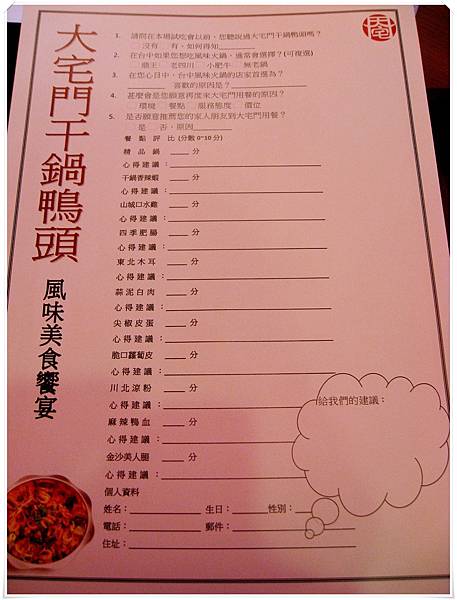 大宅門干鍋鴨頭
風味美食饗宴
大宅
1. 請問在本場試吃會以前，您聽說過大宅門干鍋鴨頭嗎？
□沒有 □有，如何得知______
2. 在台中如果您想吃風味火鍋，通常會選擇？(可複選)
□鼎王 □老四川 □小肥牛 □無老鍋
3. 在您心目中，台中風味火鍋的店家首選為？
______ 喜歡的原因是？______
4. 甚麼會是您願意再度來大宅門用餐的原因？
□環境 □餐點 □服務態度 □價位
5. 是否願意推薦您的家人朋友到大宅門用餐？
□是 □否，原因______
餐點評比 (分數 0~10 分)
精品鍋 ____ 分
心得建議：
干鍋香辣蝦 ____ 分
心得建議：
山城口水雞 ____ 分
心得建議：
四季肥腸 ____ 分
心得建議：
東北木耳 ____ 分
心得建議：
蒜泥白肉 ____ 分
心得建議：
尖椒皮蛋 ____ 分
心得建議：
脆口蘿蔔皮 ____ 分
心得建議：
川北涼粉 ____ 分
心得建議：
麻辣鴨血 ____ 分
心得建議：
金沙美人腿 ____ 分
心得建議：
給我們的建議：
個人資料
姓名：______ 生日：______ 性別：______
電話：______ 郵件：______
住址：______